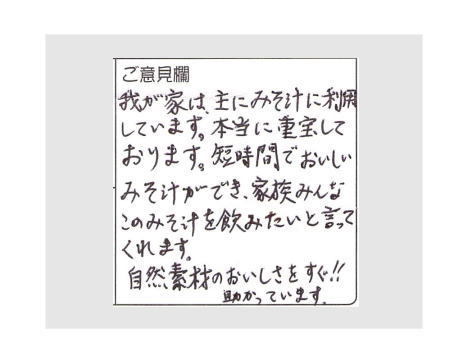 ご意見欄
我が家は、主にみそ汁に利用
しています。本当に重宝して
おります。短時間でおいしい
みそ汁ができ、家族みんな
このみそ汁を飲みたいと言って
くれます。
自然素材のおいしさをすぐ!!
助かっています。